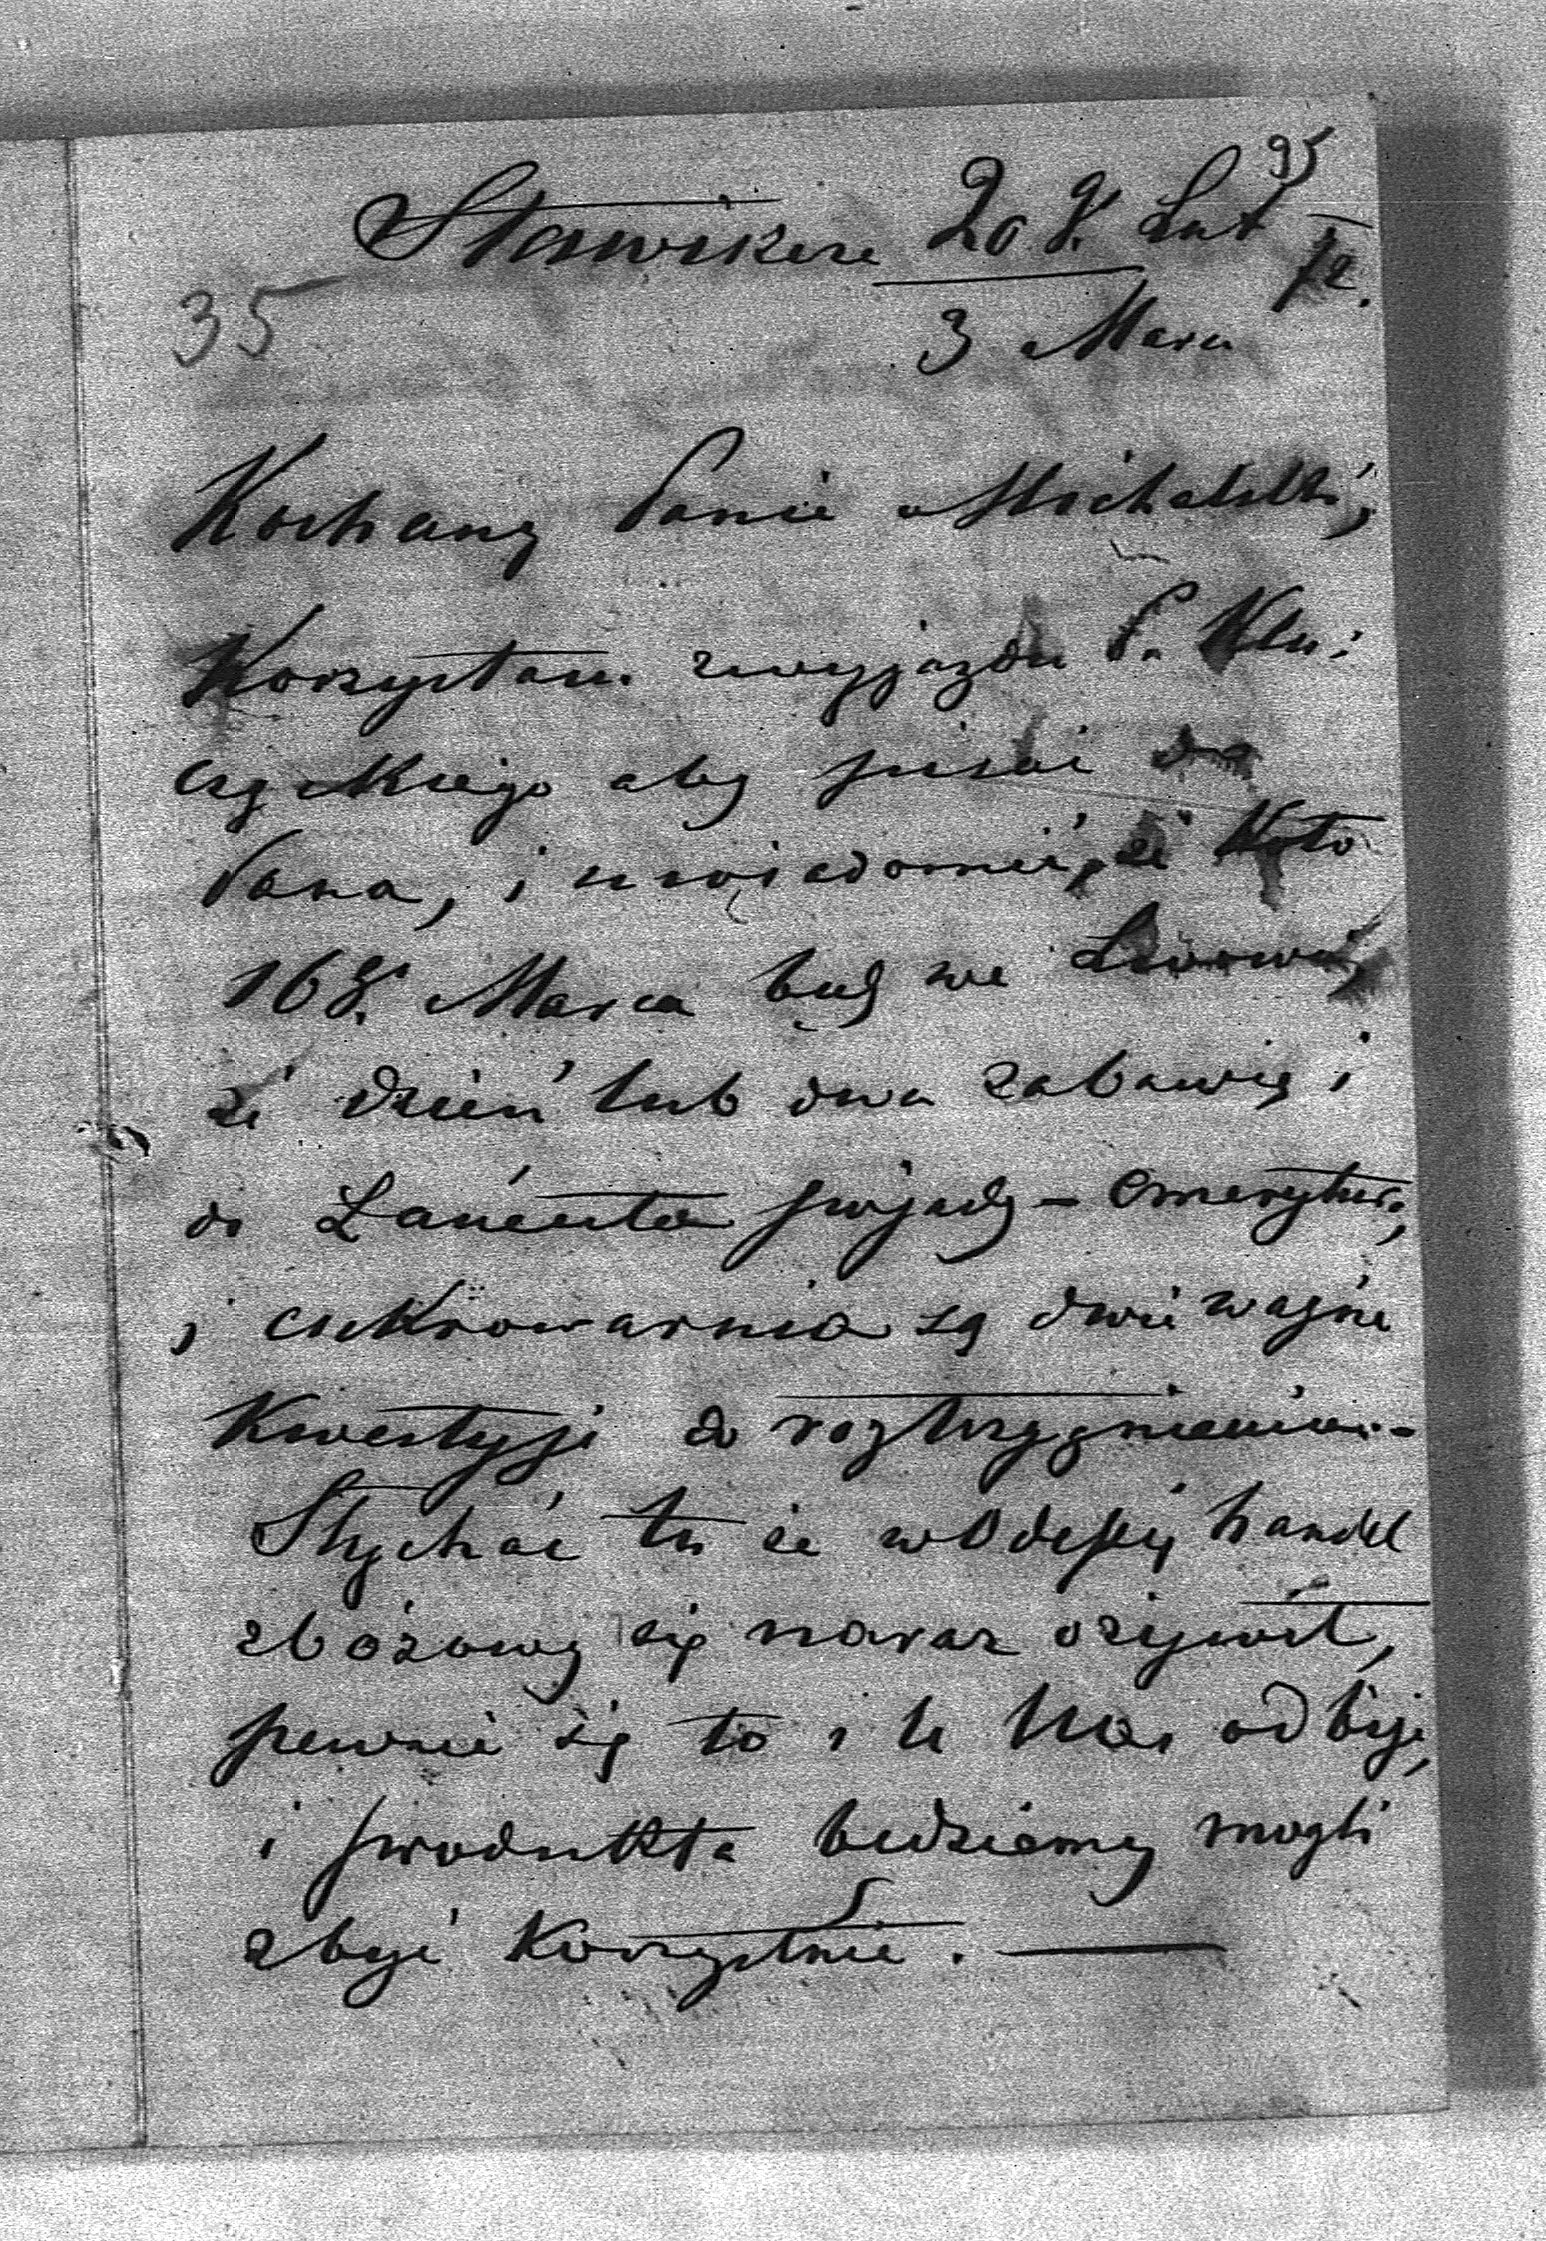 95
20 g. Lut 72.
35
3 Marca
Kochany Panie Michalski,
Korzystam z wyjazdu P. Klu:
czyckiego aby pisać do
Pana, i uwiadomić, że koło
16 g. Marca będę we Lwowie,
że dzień lub dwa zabawię i
do Łańcuta przyjadę – emerytura,
i cukrowarnia są dwie ważne
kwestyje do roztrzygnienia –
Słychać tu że w Odessy handel
zbożowy się naraz ożywił,
pewnie się to i u Nas odbije,
i produkta będziemy mogli
zbyć korzystnie. —